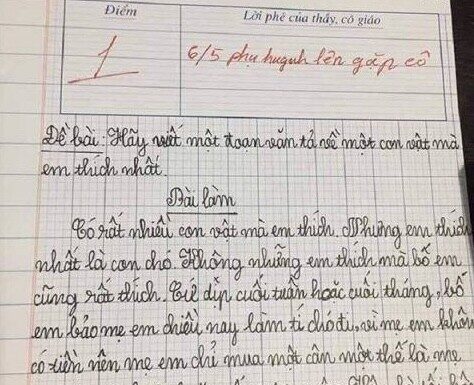 Điểm
Lời phê của thầy, cô giáo
1
6/5 phụ huynh lên gặp cô
Đề bài: Hãy viết một đoạn văn tả về một con vật mà
em thích nhất.
Bài làm
Có rất nhiều con vật mà em thích. Nhưng em thích
nhất là con chó. Không những em thích mà bố em
cũng rất thích. Cứ dịp cuối tuần hoặc cuối tháng, bố
em bảo mẹ em chiều nay làm tí chó đi, vì mẹ em không
có tiền nên mẹ em chỉ mua một cân một thế là mẹ